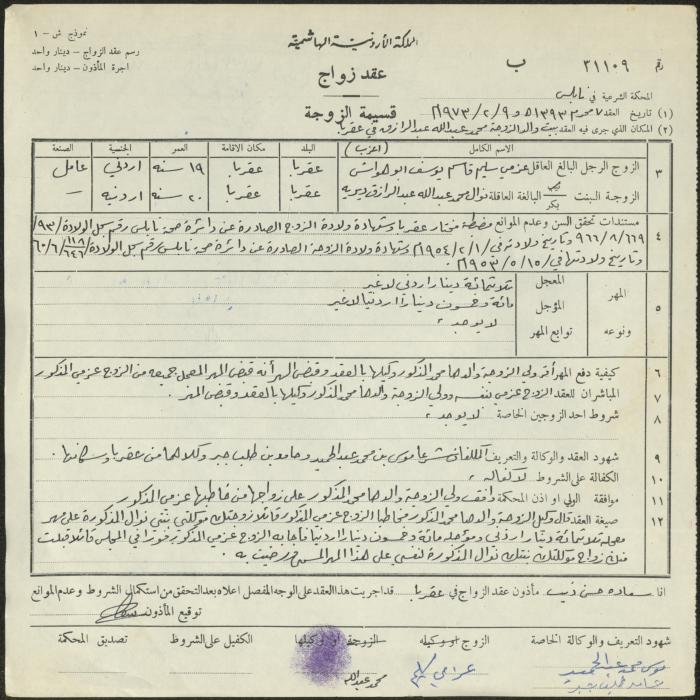 المملكة الأردنية الهاشمية
نموذج ش - ١
رسم عقد الزواج - دينار واحد
اجرة المأذون - دينار واحد
رقم ٣١١٠٩ ب
عقد زواج
المحكمة الشرعية في نابلس
قسيمة الزوجة
(١) تاريخ العقد ٧ محرم ١٣٩٣هـ و ٩/٢/١٩٧٣م
(٢) المكان الذي جرى فيه العقد بيت والد الزوجة محمد عبدالله عبدالرازق في عقربا
الاسم الكامل (أعزب) البلد مكان الاقامة العمر الجنسية الصنعة
٣ الزوج الرجل البالغ العاقل عزمي سليم قاسم يوسف ابو هواش عقربا عقربا ١٩ سنه اردني عامل
الزوجة البنت ثيب بكر البالغة العاقلة نوال محمد عبدالله عبدالرازق عقربا عقربا ٢٠ سنه اردنيه —
٤ مستندات تحقق السن وعدم الموانع مضبطة مختار عقربا وشهادة ولادة الزوج الصادرة عن دائرة صحة نابلس رقم سجل الولادة
وتاريخ ولادته في ١/٢/١٩٥٤م وشهادة ولادة الزوجة الصادرة عن دائرة صحة نابلس رقم سجل الولادة
وتاريخ ولادتها في ١٥/٥/١٩٥٣م
٥ المهر ونوعه
المعجل ثلاثمائة دينار اردني لاغير
المؤجل مائة وخمسون دينارا اردنيا لاغير
توابع المهر لا يوجد
٦ كيفية دفع المهر أقر ولي الزوجة والدها محمد المذكور وكيلها بالعقد وقبض المهر أنه قبض المهر المعجل جميعه من الزوج عزمي المذكور
٧ المباشران للعقد الزوج عزمي بنفسه وولي الزوجة والدها محمد المذكور وكيلها بالعقد وقبض المهر .
٨ شروط احد الزوجين الخاصة لا يوجد
٩ شهود العقد والوكالة والتعريف المكلفان شرعا موسى بن محمد عبدالحميد وحامد بن طلب جبر وكلاهما من عقربا وسكانها .
١٠ الكفالة على الشروط لا كفاله
١١ موافقة الولي او اذن المحكمة وافق ولي الزوجة والدها محمد المذكور على زواجها من خاطبها عزمي المذكور
١٢ صيغة العقد قال وكيل الزوجة والدها محمد المذكور مخاطبا الزوج عزمي المذكور قائلا زوجتك موكلتي بنتي نوال المذكورة على مهر
معجله ثلاثمائة دينار اردني ومؤجله مائة وخمسون دينارا اردنيا فأجابه الزوج عزمي المذكور فورا في المجلس قائلا قبلت
منك زواج موكلتك بنتك نوال المذكورة لنفسي على هذا المهر المسمى ورضيت به
انا سعاده حسن ذيب مأذون عقد الزواج في عقربا قد اجريت هذا العقد على الوجه المفصل اعلاه بعد التحقق من استكمال الشروط وعدم الموانع
توقيع المأذون
شهود التعريف والوكالة الخاصة الزوج او وكيله الزوجة او وكيلها الكفيل على الشروط تصديق المحكمة
موسى محمد عبدالحميد
عزمي
محمد عبدالله